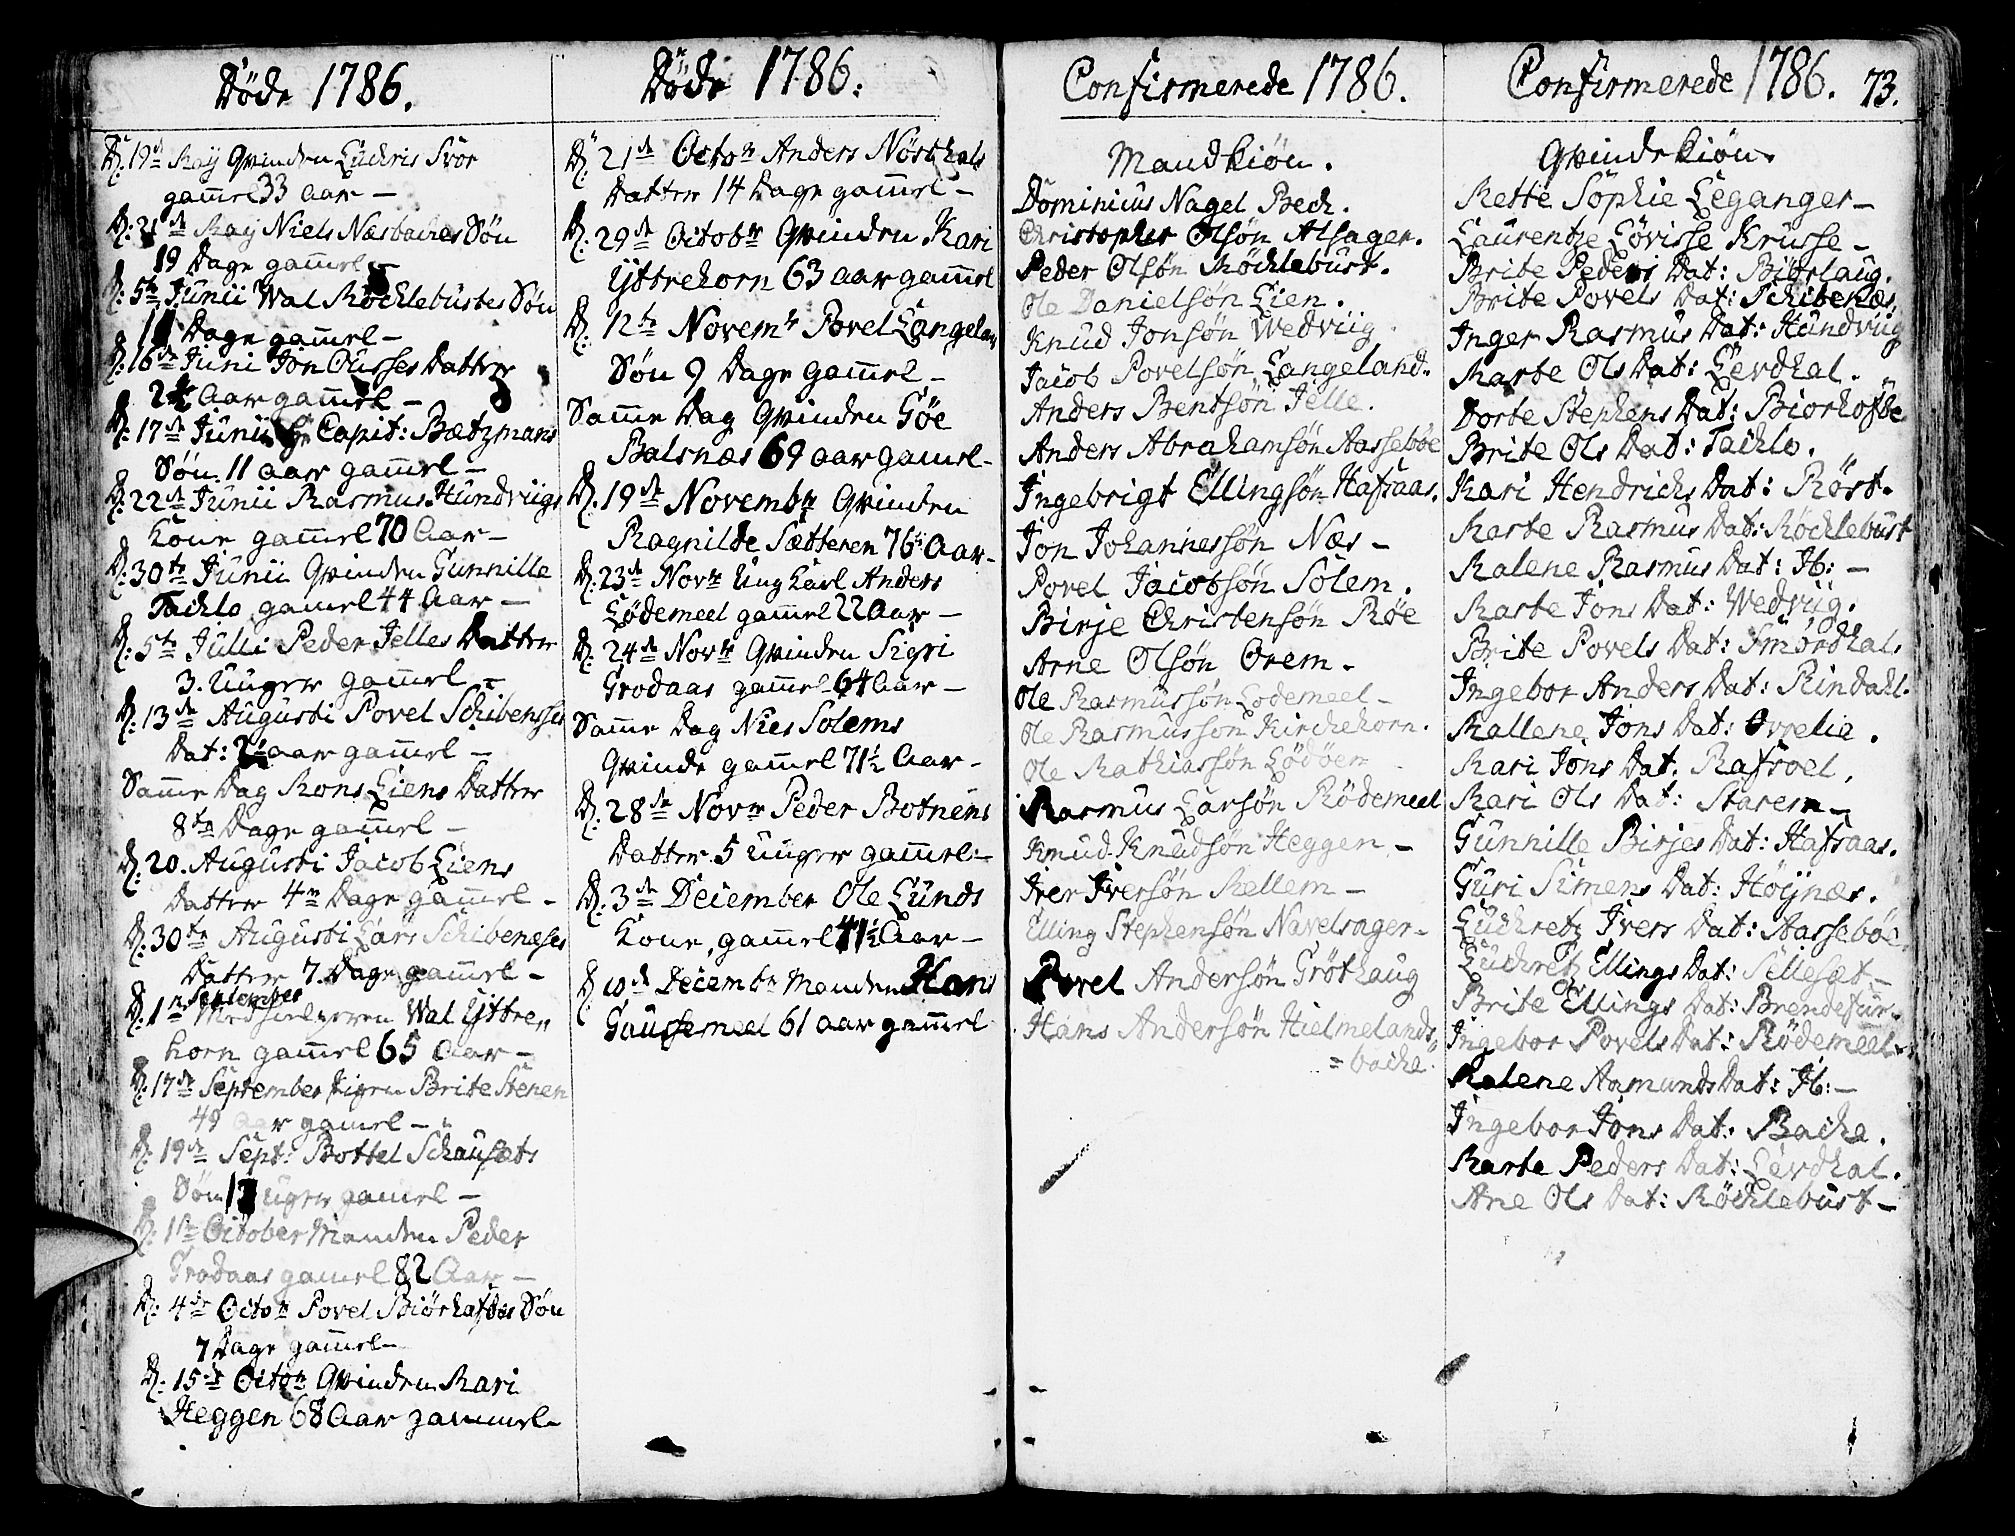 Døde 1786.
D: 19de Maÿ Qvinden Luchris Svor
gammel 33 aar —
D: 21de Maÿ Niels Næsbaches Søn
19 Dage gammel —
D: 5te Junii Wal Røcklebustes Søn
11 Dage gammel —
D: 16de Juni Jon Ousses Datter
Aar gammel —
D: 17de Junii Capit: Bætzmans
Søn 11 aar gammel —
D: 22de Junii Rasmus Hundviigs
Kone gammel 70 Aar —
D: 30te Junii Qvinden Gunnille
Tachlo gamel 44 Aar —
D: 5te Julli Peder Jelles Datter
3. Uuger gammel —
D: 13de Augusti Povel Schibenses
Dat: aar gammel —
Samme Dag Mons Liens Datter
8te Dage gammel —
D: 20. Augusti Jacob Liens
Datter 4re Dage gammel —
D: 30te Augusti Lars Schibenæses
Datter 7. Dage gammel —
September
D: 1te Wal Ÿttre
horn gammel 65 Aar —
D: 17de September Pigen Brite Stenen
49 Aar gamel —
D: 19de Sept: Bottel Schausæts
Søn Uger gamel —
D: 1te October Manden Peder
Grodaas gamel 82 Aar —
D: 4de Octor Povel Biørhafdes Søn
7 Dage gammel —
D: 15de Octor Qvinden Mari
Heggen 68 Aar gammel —
Døde 1786.
D: 21de Octor Anders Nørdhals
Datter 14 Dage gammel —
D: 29de Octobr Qvinden Kari
Ÿttrehorn 63 aar gammel
D: 12te Novemr Povel Langeland
Søn 9 Dage gammel —
Samme Dag Qvinden Gøe
Balsnæs 69 aar gamel —
D: 19de Novembr Qvinden
Ragnilde Sætteren 76 Aar —
D: 23de Novr Ung Karl Anders
Lødemeel gammel 22 Aar —
D: 24de Novr Qvinden Sigri
Grodaas gammel 64 Aar —
Samme Dag Nies Solems
Qvinde gammel 71½ Aar —
D: 28de Novr Peder Botnens
Datter 5 Uuger gammel —
D: 3de December Ole Lunds
Kone, gammel 41½ Aar —
D: 10de Decembr Manden Hans
Gaussemeel 61 aar gammel
Confirmerede 1786.
Mandkiøn.
Dominicus Nagel Bech.
Christopher Olsøn Alsager.
Peder Olsøn Røcklebust.
Ole Danielsøn Lien.
Knud Jonsøn Wedviig.
Jacob Povelsøn Langeland.
Anders Bentsøn Jelle.
Anders Abrahamsøn Aassebøe
Ingebrigt Ellingsøn Hafsaas.
Jon Johannessøn Næs —
Povel Jacobsøn Solem.
Birje Christensøn Røe
Arne Olsøn Orem —
Ole Rasmussøn Lødemeel —
Ole Rasmussøn Kirchehorn.
Ole Mathiassøn Lødøen
Rasmus Larsøn Rødemeel
Knud Knudsøn Heggen —
Iver Iversøn Mellem —
Elling Stephensøn Navelsager —
Povel Andersøn Grøthaug
Hans Andersøn Hielmelands
= bache.
Confirmerede 1786. 73.
Qvindekiøn.
Mette Sophie Leganger —
Laurentze Lovisse Krusse —
Brite Peders Dat: Biørlaug.
Brite Povels Dat: Schibenæs
Inger Rasmus Dat: Hundviig
Marte Ols Dat: Lerdhal.
Dorte Stephens Dat: Biorhofde
Brite Ols Dat: Tachlo.
Kari Hendrichs Dat: Røst.
Marte Rasmus Dat: Røcklebust
Malene Rasmus Dat: Ib: —
Marte Jons Dat: Wedviig.
Brite Povels Dat: Smørdhals
Ingebor Anders Dat: Rindahl.
Mallene Jons Dat: Orrelie.
Mari Jons Dat: Rafsoel.
Mari Ols Dat: Starem —
Gunnille Birjes Dat: Hafsaas.
Guri Simens Dat: Høynæs.
Luchretz Ivers Dat: Aassebøe
Luchretz Ellings Dat: Sillesæt —
Brite Ellings Dat: Brendefur.
Ingebor Povels Dat: Rødemeel —
Malene Aamunds Dat: Ib: —
Ingebor Jons Dat: Bache.
Marte Peders Dat: Lerdhal.
Ane Ols Dat: Røcklebust —